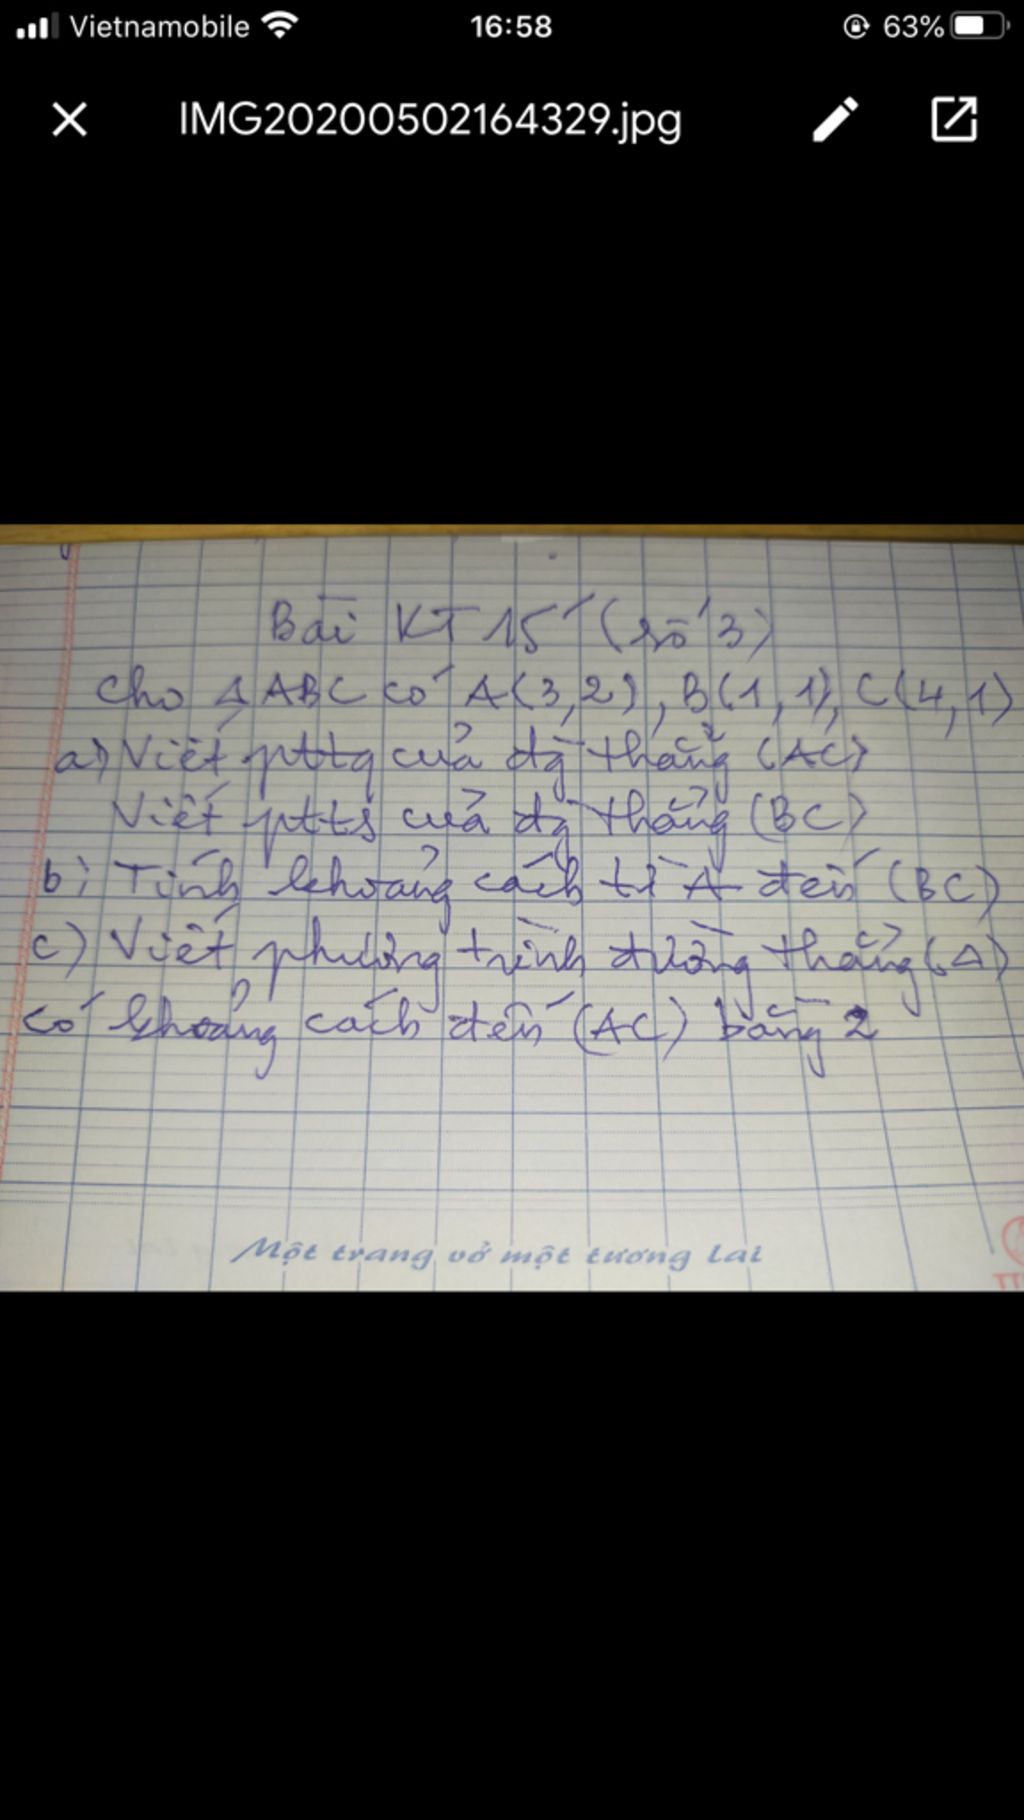 Vietnamobile 16:58 63%
IMG20200502164329.jpg
Bài KT 15' (số 3)
Cho Δ ABC có A(3,2), B(1,1), C(4,1)
a) Viết pttq của đg thẳng (AC)
Viết ptts của đg thẳng (BC)
b) Tính khoảng cách từ A đến (BC)
c) Viết phương trình đường thẳng (Δ)
có khoảng cách đến (AC) bằng 2
Một trang vở một tương lai